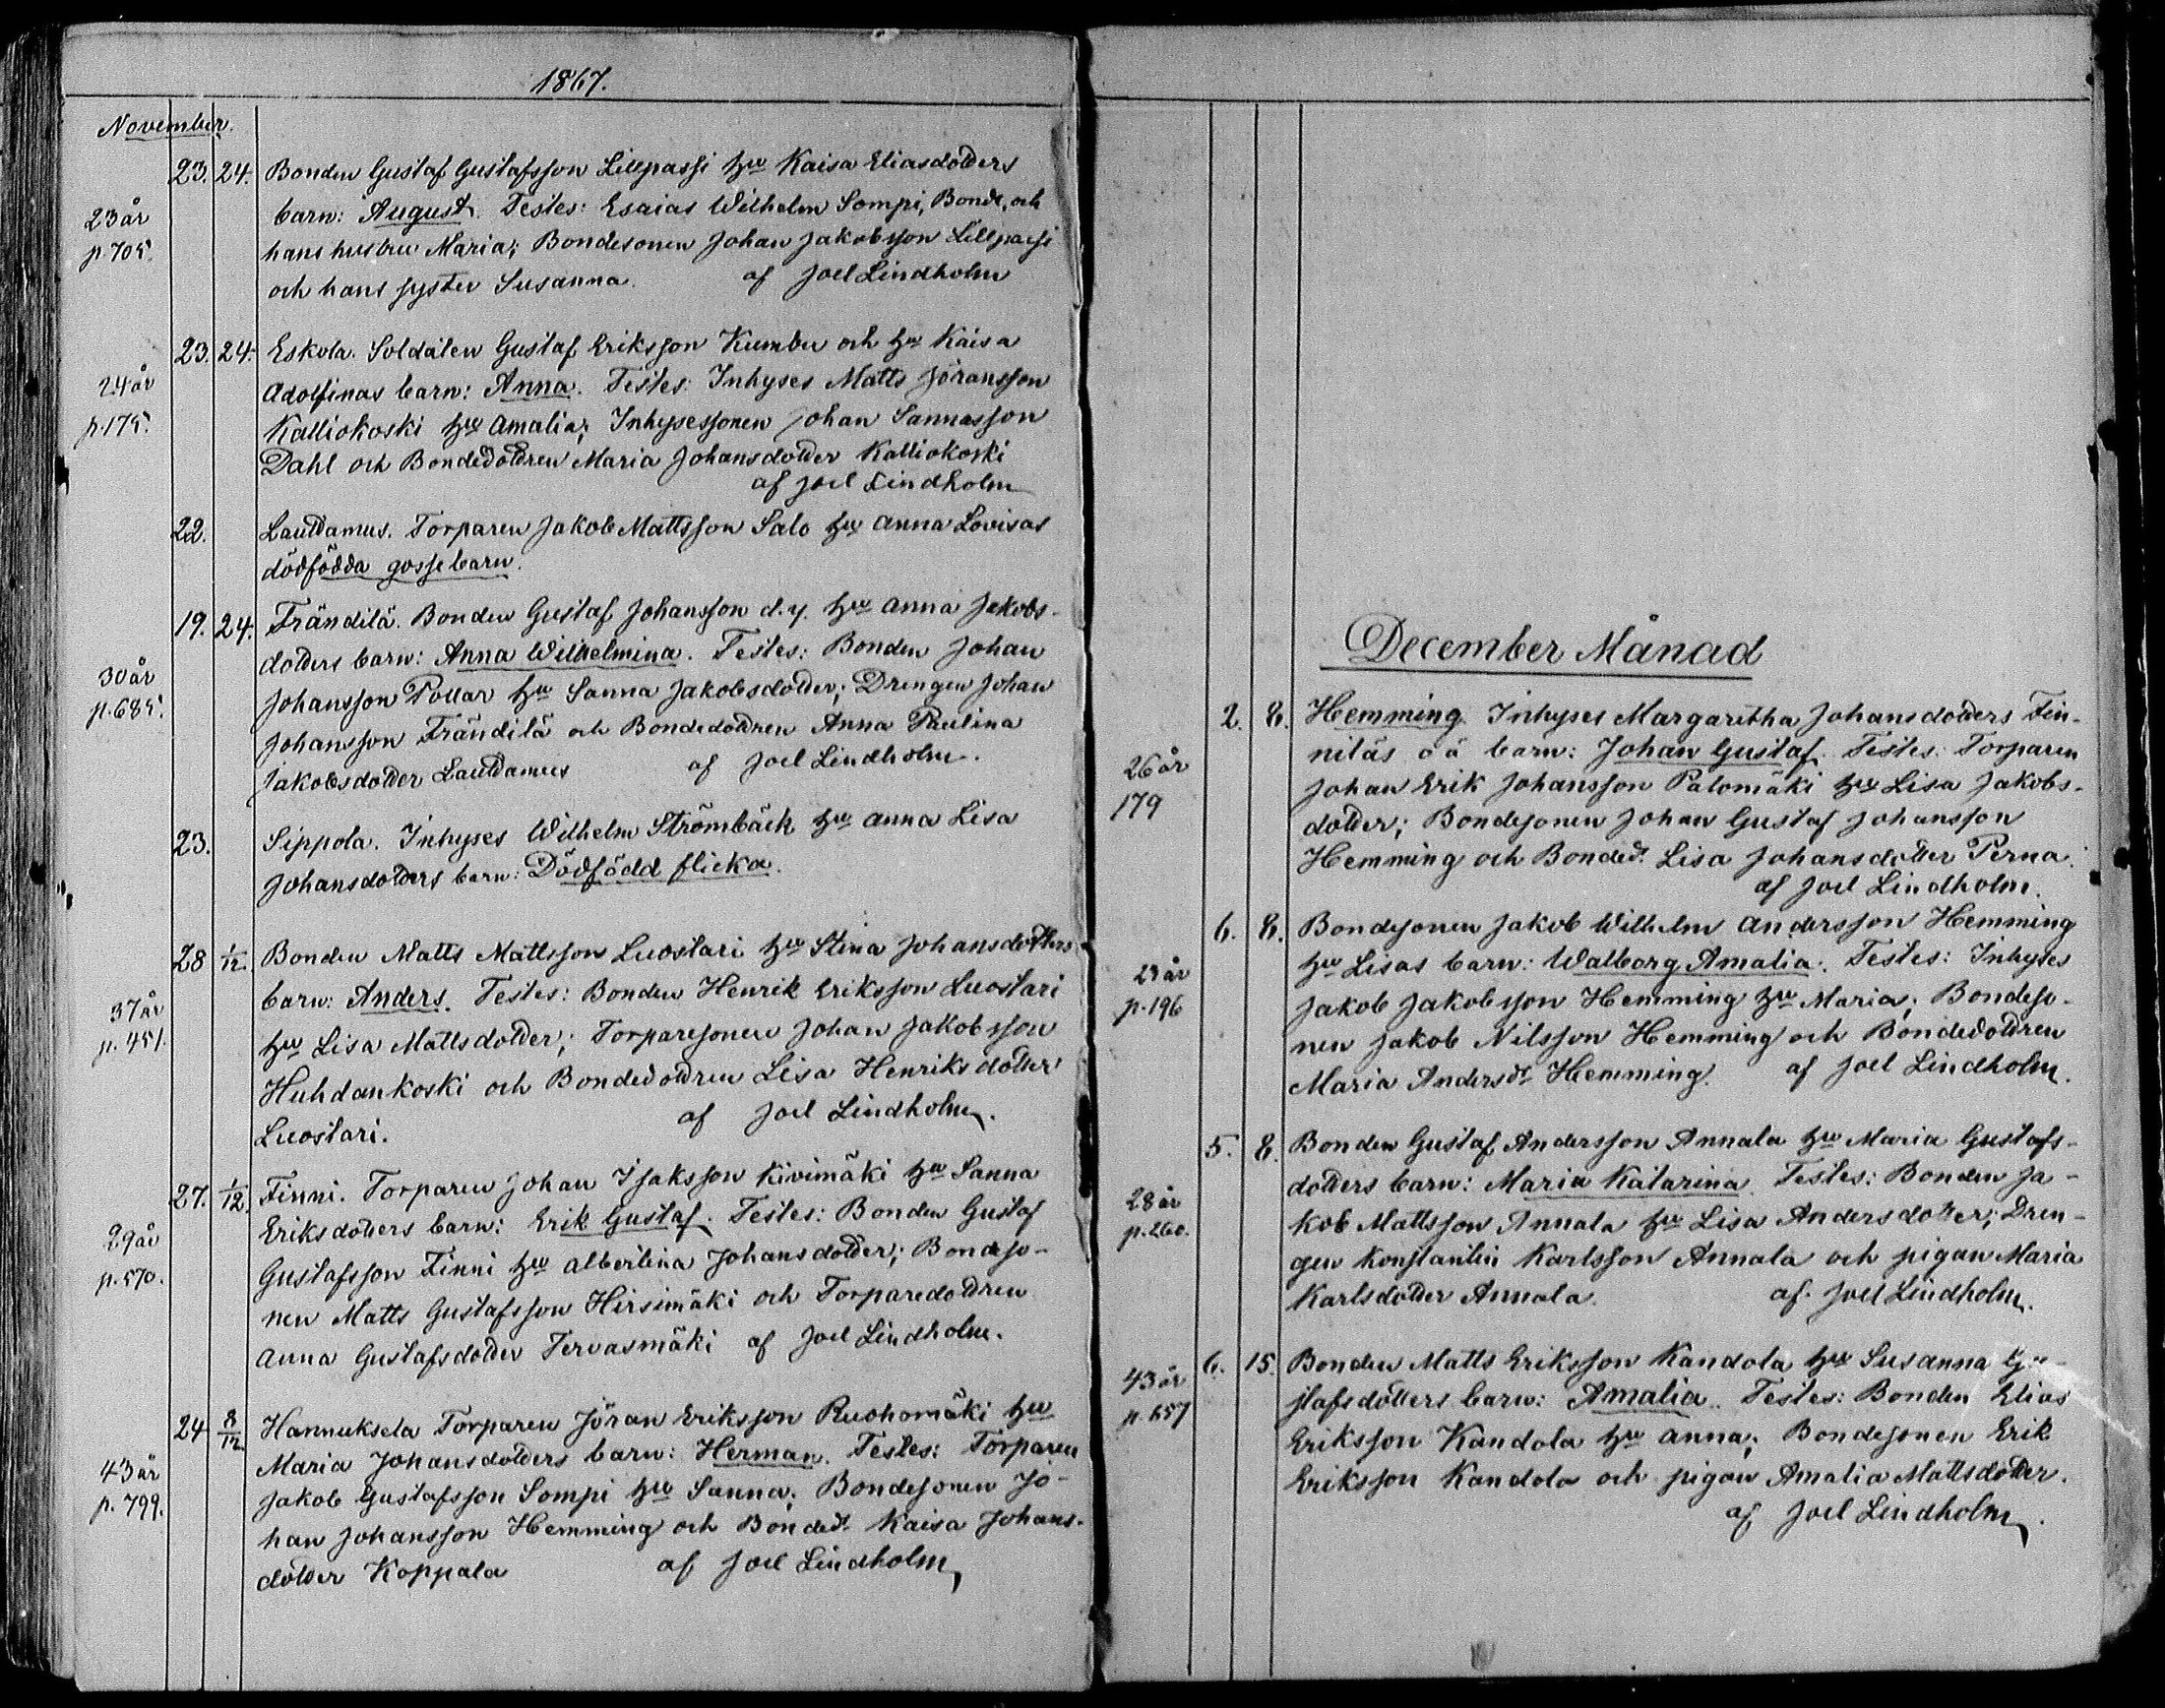 1867.
November.
23. 24. Bonden Gustaf Gustafsson Lillpassi hu Kaisa Eliasdotters
23 år barn: August. Testes: Esaias Wilhelm Sompi, Bonde, och
p. 705. hans hustru Maria; Bondesonen Johan Jakobsson Lillpassi
och hans syster Susanna. af Joel Lindholm
23. 24. Eskola. Soldaten Gustaf Eriksson Kumbu och hu Kaisa
24 år Adolfinas barn: Anna. Testes: Inhyses Matts Jöransson
p. 175. Kalliokoski hu Amalia; Inhysessonen Johan Sannasson
Dahl och Bondedottren Maria Johansdotter Kalliokoski
af Joel Lindholm
22. Lauttamus. Torparen Jakob Mattsson Salo hu Anna Lovisas
dödfödda gossebarn.
19. 24. Frändilä. Bonden Gustaf Johansson d.y. hu Anna Jakobs-
dotters barn: Anna Wilhelmina. Testes: Bonden Johan
30 år Johansson Pollar hu Sanna Jakobsdotter; Drengen Johan
p. 685. Johansson Frändilä och Bondedottren Anna Paulina
Jakobsdotter Lauttamus af Joel Lindholm.
23. Sippola. Inhyses Wilhelm Strömbäck hu Anna Lisa
Johansdotters barn: Dödfödd flicka.
28 1/12. Bonden Matts Mattsson Luostari hu Stina Johansdotters
37 år barn: Anders. Testes: Bonden Henrik Eriksson Luostari
p. 451. hu Lisa Mattsdotter; Torparesonen Johan Jakobsson
Huhdankoski och Bondedottren Lisa Henriksdotter
Luostari. af Joel Lindholm.
27. 1/12. Finni. Torparen Johan Isaksson Kivimäki hu Sanna
29 år Eriksdotters barn: Erik Gustaf. Testes: Bonden Gustaf
p. 570. Gustafsson Finni hu Albertina Johansdotter; Bondeso-
nen Matts Gustafsson Hirsimäki och Torparedottren
Anna Gustafsdotter Tervasmäki af Joel Lindholm.
24 8/12 Hannuksela Torparen Jöran Eriksson Ruohomäki hu
Maria Johansdotters barn: Herman. Testes: Torparen
43 år Jakob Gustafsson Sompi hu Sanna; Bondesonen Jo-
p. 799. han Johansson Hemming och Bonded. Kaisa Johans-
dotter Koppala af Joel Lindholm
December Månad
2. 8. Hemming. Inhyses Margaretha Johansdotters Fin-
26 år niläs oä barn: Johan Gustaf. Testes: Torparen
179 Johan Erik Johansson Palomäki hu Lisa Jakobs-
dotter; Bondesonen Johan Gustaf Johansson
Hemming och Bonded. Lisa Johansdotter Perna.
af Joel Lindholm.
6. 8. Bondesonen Jakob Wilhelm Andersson Hemming
23 år hu Lisas barn: Walborg Amalia. Testes: Inhyses
p. 196 Jakob Jakobsson Hemming hu Maria; Bondeso-
nen Jakob Nilsson Hemming och Bondedottren
Maria Andersdr Hemming. af Joel Lindholm.
5. 8. Bonden Gustaf Andersson Annala hu Maria Gustafs-
dotters barn: Maria Katarina. Testes: Bonden Ja-
28 år kob Mattsson Annala hu Lisa Andersdotter; Dren-
p. 260. gen Konstantin Karlsson Annala och pigan Maria
Karlsdotter Annala. af Joel Lindholm.
6. 15. Bonden Matts Eriksson Kandola hu Susanna Gu-
43 år stafsdotters barn: Amalia. Testes: Bonden Elias
p. 657 Eriksson Kandola hu Anna; Bondesonen Erik
Eriksson Kandola och pigan Amalia Mattsdotter.
af Joel Lindholm.